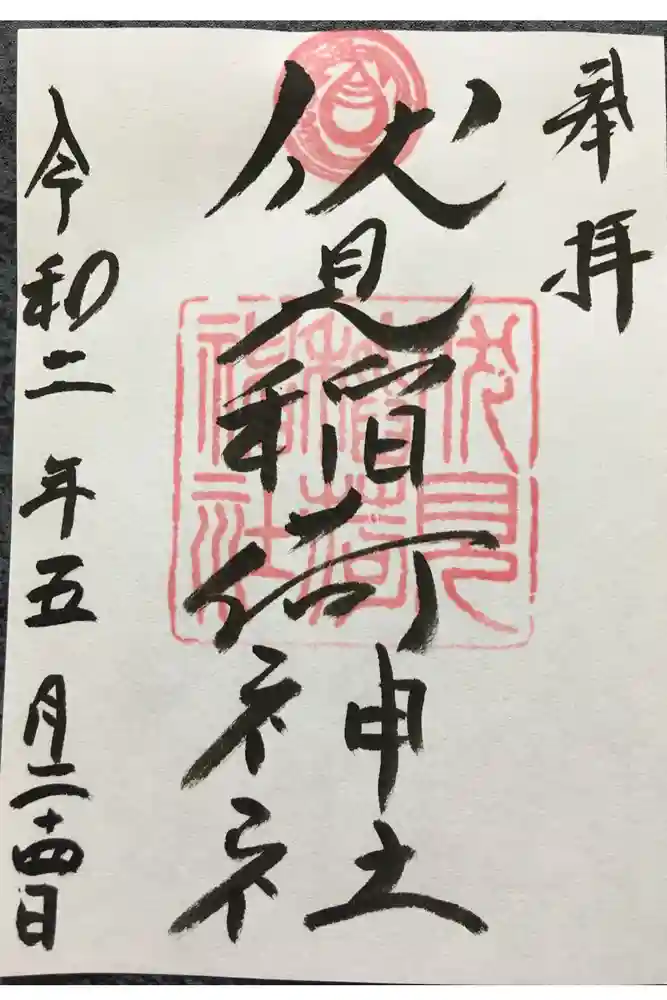 奉拝
伏見稲荷神社
令和二年五月二十四日
伏見
稲荷
神社